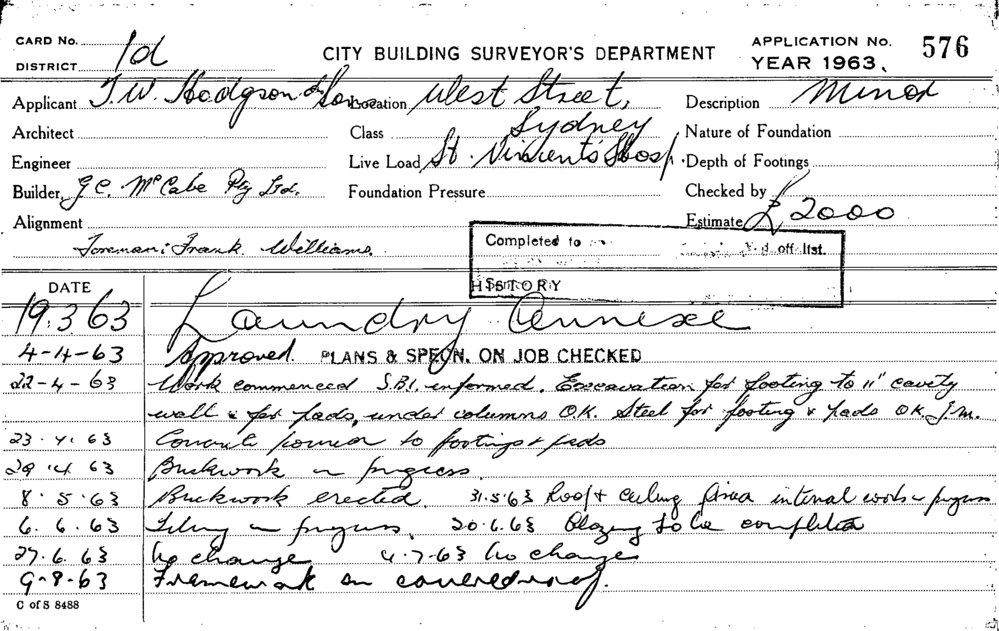 CARD No. 1d CITY BUILDING SURVEYOR'S DEPARTMENT APPLICATION No. 576
DISTRICT YEAR 1963.
Applicant T. W. Hodgson & Sons Location West Street, Description Minor
Architect Class Sydney Nature of Foundation
Engineer Live Load St. Vincent's Hosp. Depth of Footings
Builder G C. McCabe Pty Ltd. Foundation Pressure Checked by
Alignment Estimate £2000
Foreman: Frank Williams. Completed to off list.
HISTORY
DATE
19.3.63 Laundry Annexe
4-4-63 Approved. PLANS & SPECN. ON JOB CHECKED
22-4-63 Work commenced S.B.I. informed. Excavation for footing to 11" cavity
wall & for pads, under columns O.K. Steel for footing & pads O.K. J.M.
23.4.63 Concrete poured to footings & pads
29.4.63 Brickwork in progress
8.5.63 Brickwork erected. 31.5.63 Roof & ceiling fixed internal work in progress
6.6.63 Tiling in progress. 20.6.63 Glazing to be completed
27.6.63 No change 4-7-63 No change
9-8-63 Framework on covered roof.
C of S 8488